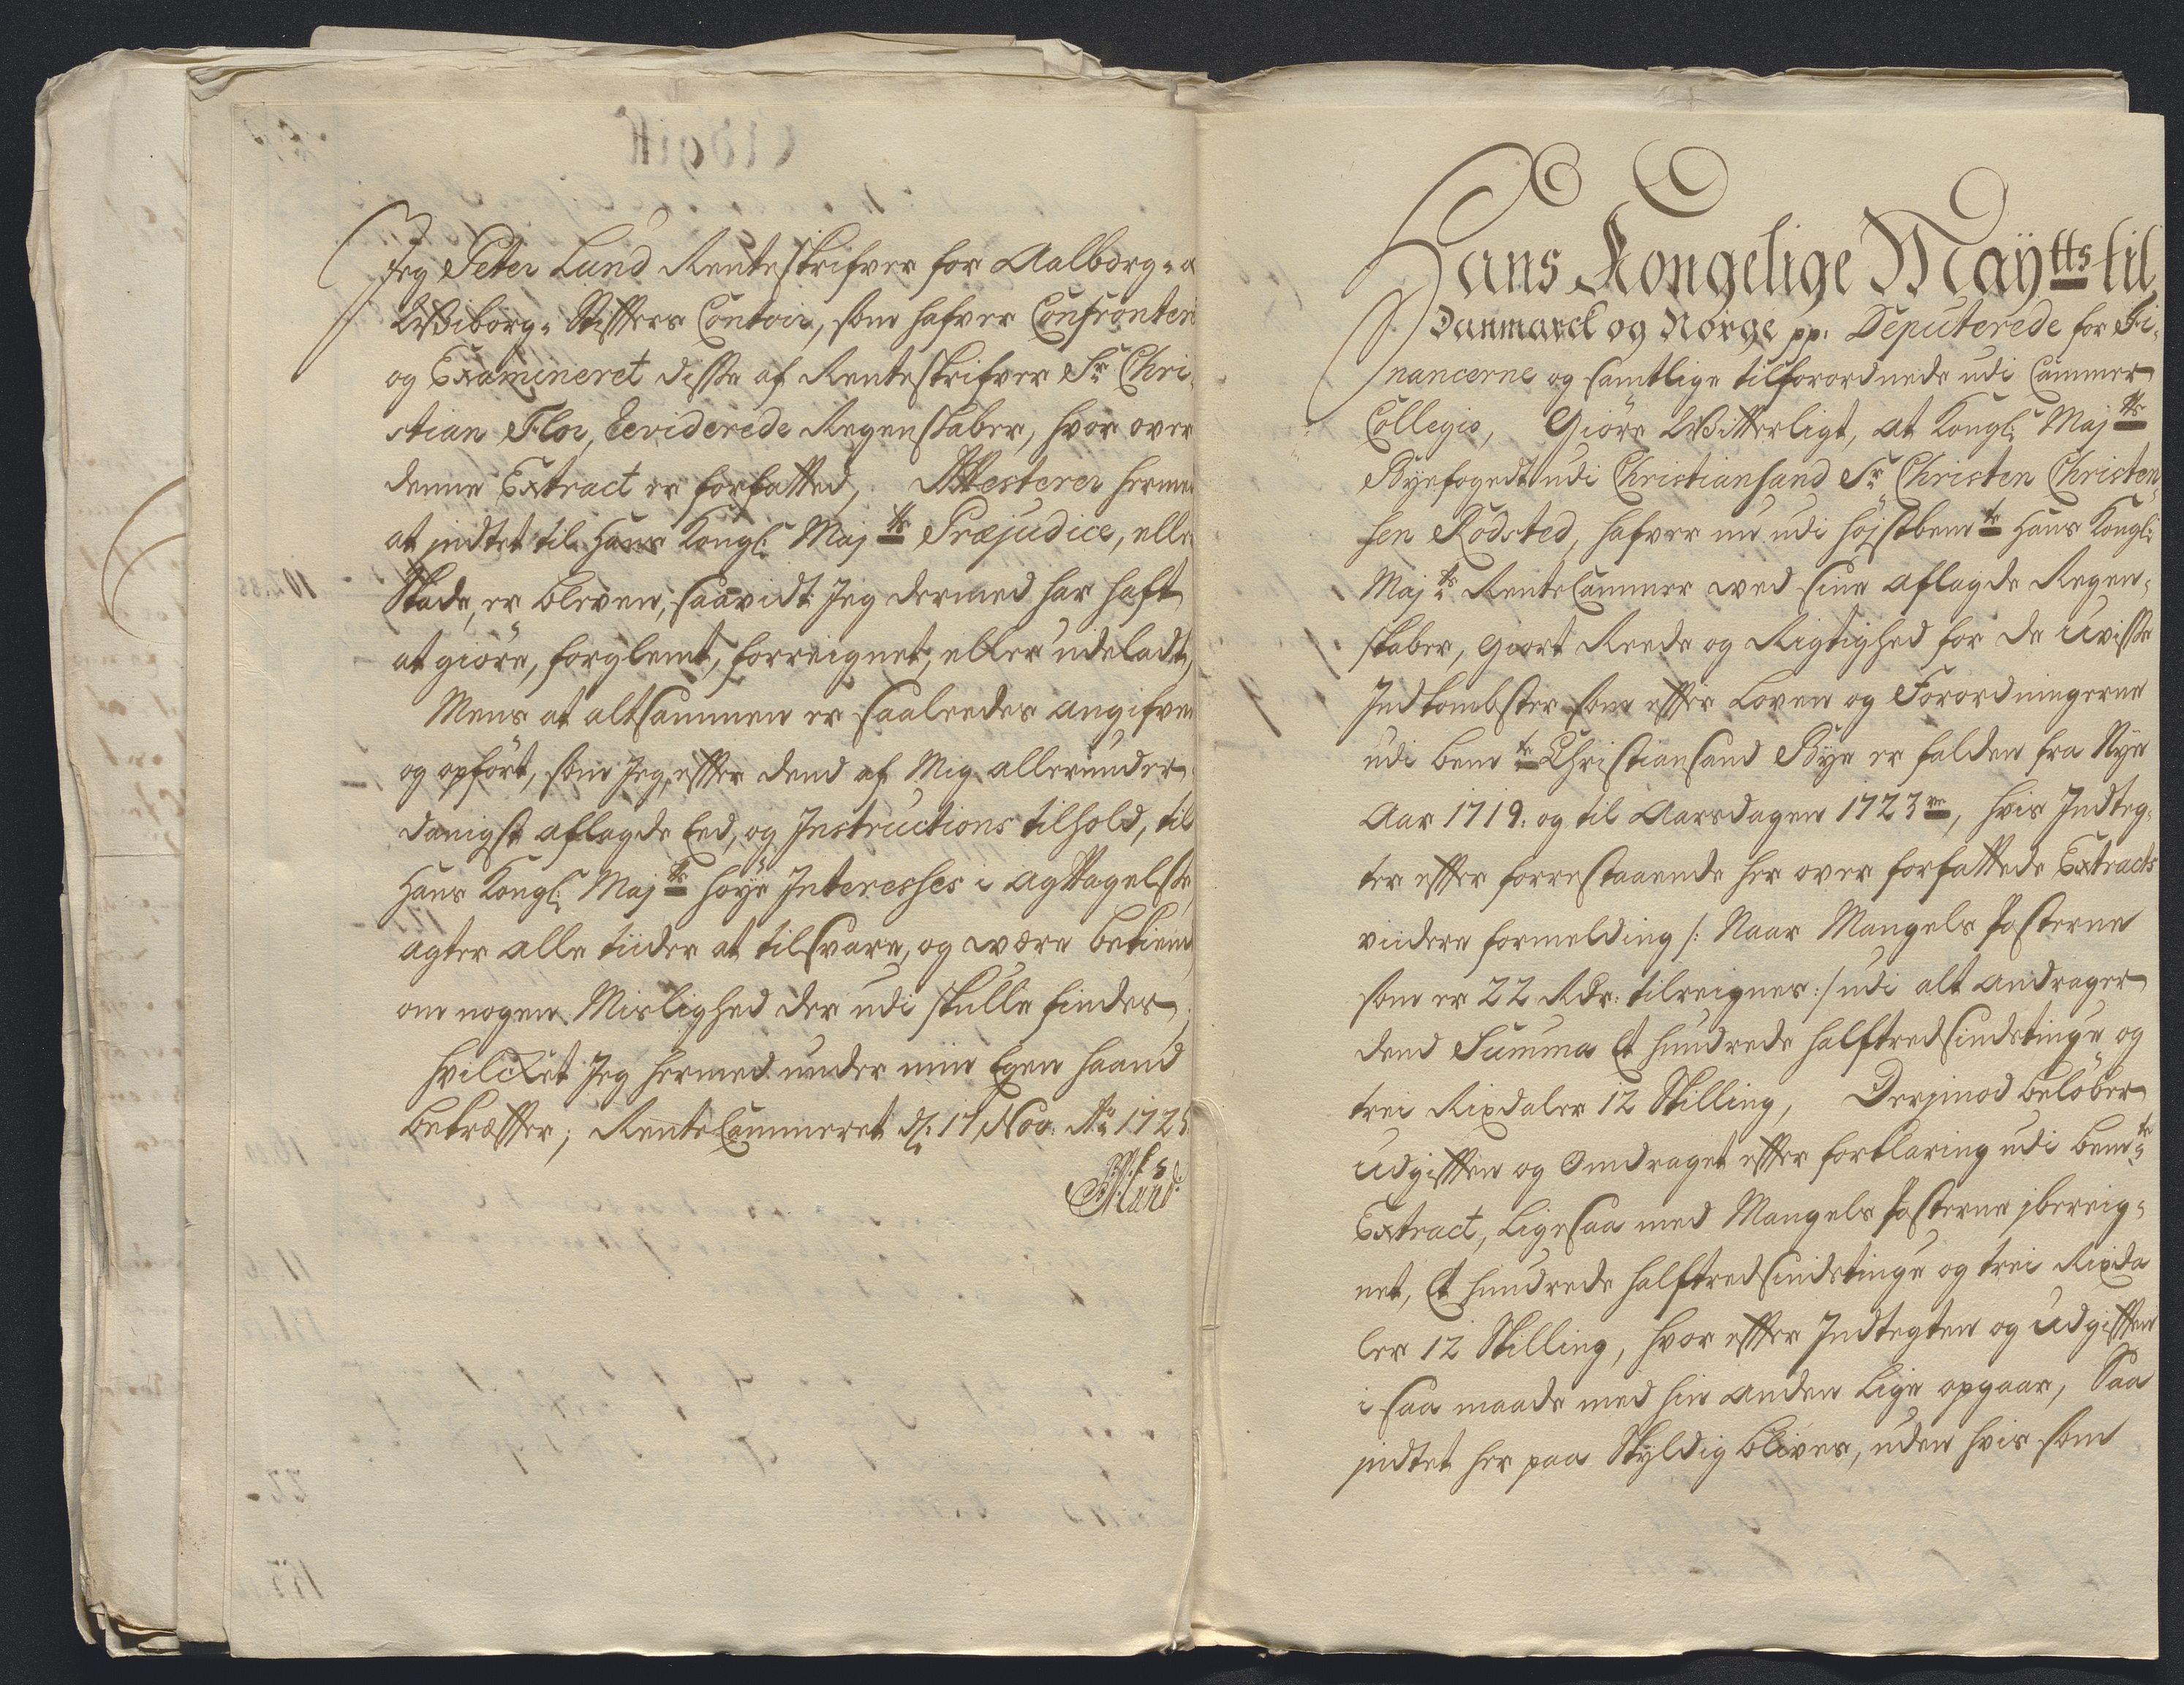 Jeg Peter Lund Renteskrifver for Aalborg- o
Wiborg- Stifters Contoir, som hafver Confronteri
og Examineret disse af Renteskrifver Sr Chri-
stian Flor, Reviderede Regenskaber, hvor over
denne Extract er forfatted, Attesterer herme
at indtet til Hans Kongl: Majtts Præjudice, elle
Skade, er bleven, saavidt Jeg dermed har haft
at giøre, forglemt, forreignet, eller udeladt,
Mens at altsammen er saaleedes angifve
og opført, som Jeg, effter dend af Mig allerunder-
danigst aflagde Eed, og Instructions tilhold, til
Hans Kongl: Majtts høye Interesses i agttagelse
agter alle tiider at tilsvare, og være bekiend
om nogen Mislighed der udi skulle findes,
hvilcket Jeg hermed under min Egen haand
bekræffter; RenteCammeret d: 17 Nov: Ao 1725
PLund
Hans Kongelige Maÿtts til
Danmarck og Norge pp: Deputerede for Fi-
nancerne og samtlige tilforordnede udi Cammer
Collegio, Giøre Witterligt, at Kongl: Majtts
Byefogedt udi Christiansand Sr Christen Christen-
sen Rodsted, hafver nu udi højstbemte Hans Kongl:
Majts RenteCammer ved sine aflagde Regen-
skaber, giort Reede og Rigtighed for de Uvisse
Indkombster som effter Loven og Forordningerne
udi bemte Christiansand Bye er falden fra Nye
Aar 1719. og til Aarsdagen 1723re, hvis Indteg-
ter effter forrestaaende her over forfattede Extracts
viidere formelding /: Naar Mangels Posterne
som er 22 Rdr: tilreignes :/ udi alt andrager
dend Summa Et hundrede halftredsindstinge og
trei Rixdaler 12 Skilling, Derjmod beløber
Udgifften og Omdraget effter forklaring udi bemte
Extract, ligesaa med Mangels Posterne jbereig-
net, Et hundrede halftredsindstinge og trei Rixda
ler 12 Skilling, hvor effter Indtegten og Udgifften
i saa maade med hin anden lige opgaar, Saa
indtet her paa Skyldig blives, uden hvis som